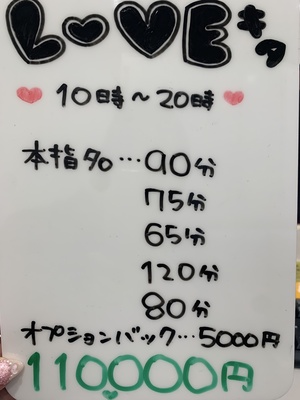 LOVEキタ
10時～20時
本指名…90分
75分
65分
120分
80分
オプションバック…5000円
110,000円